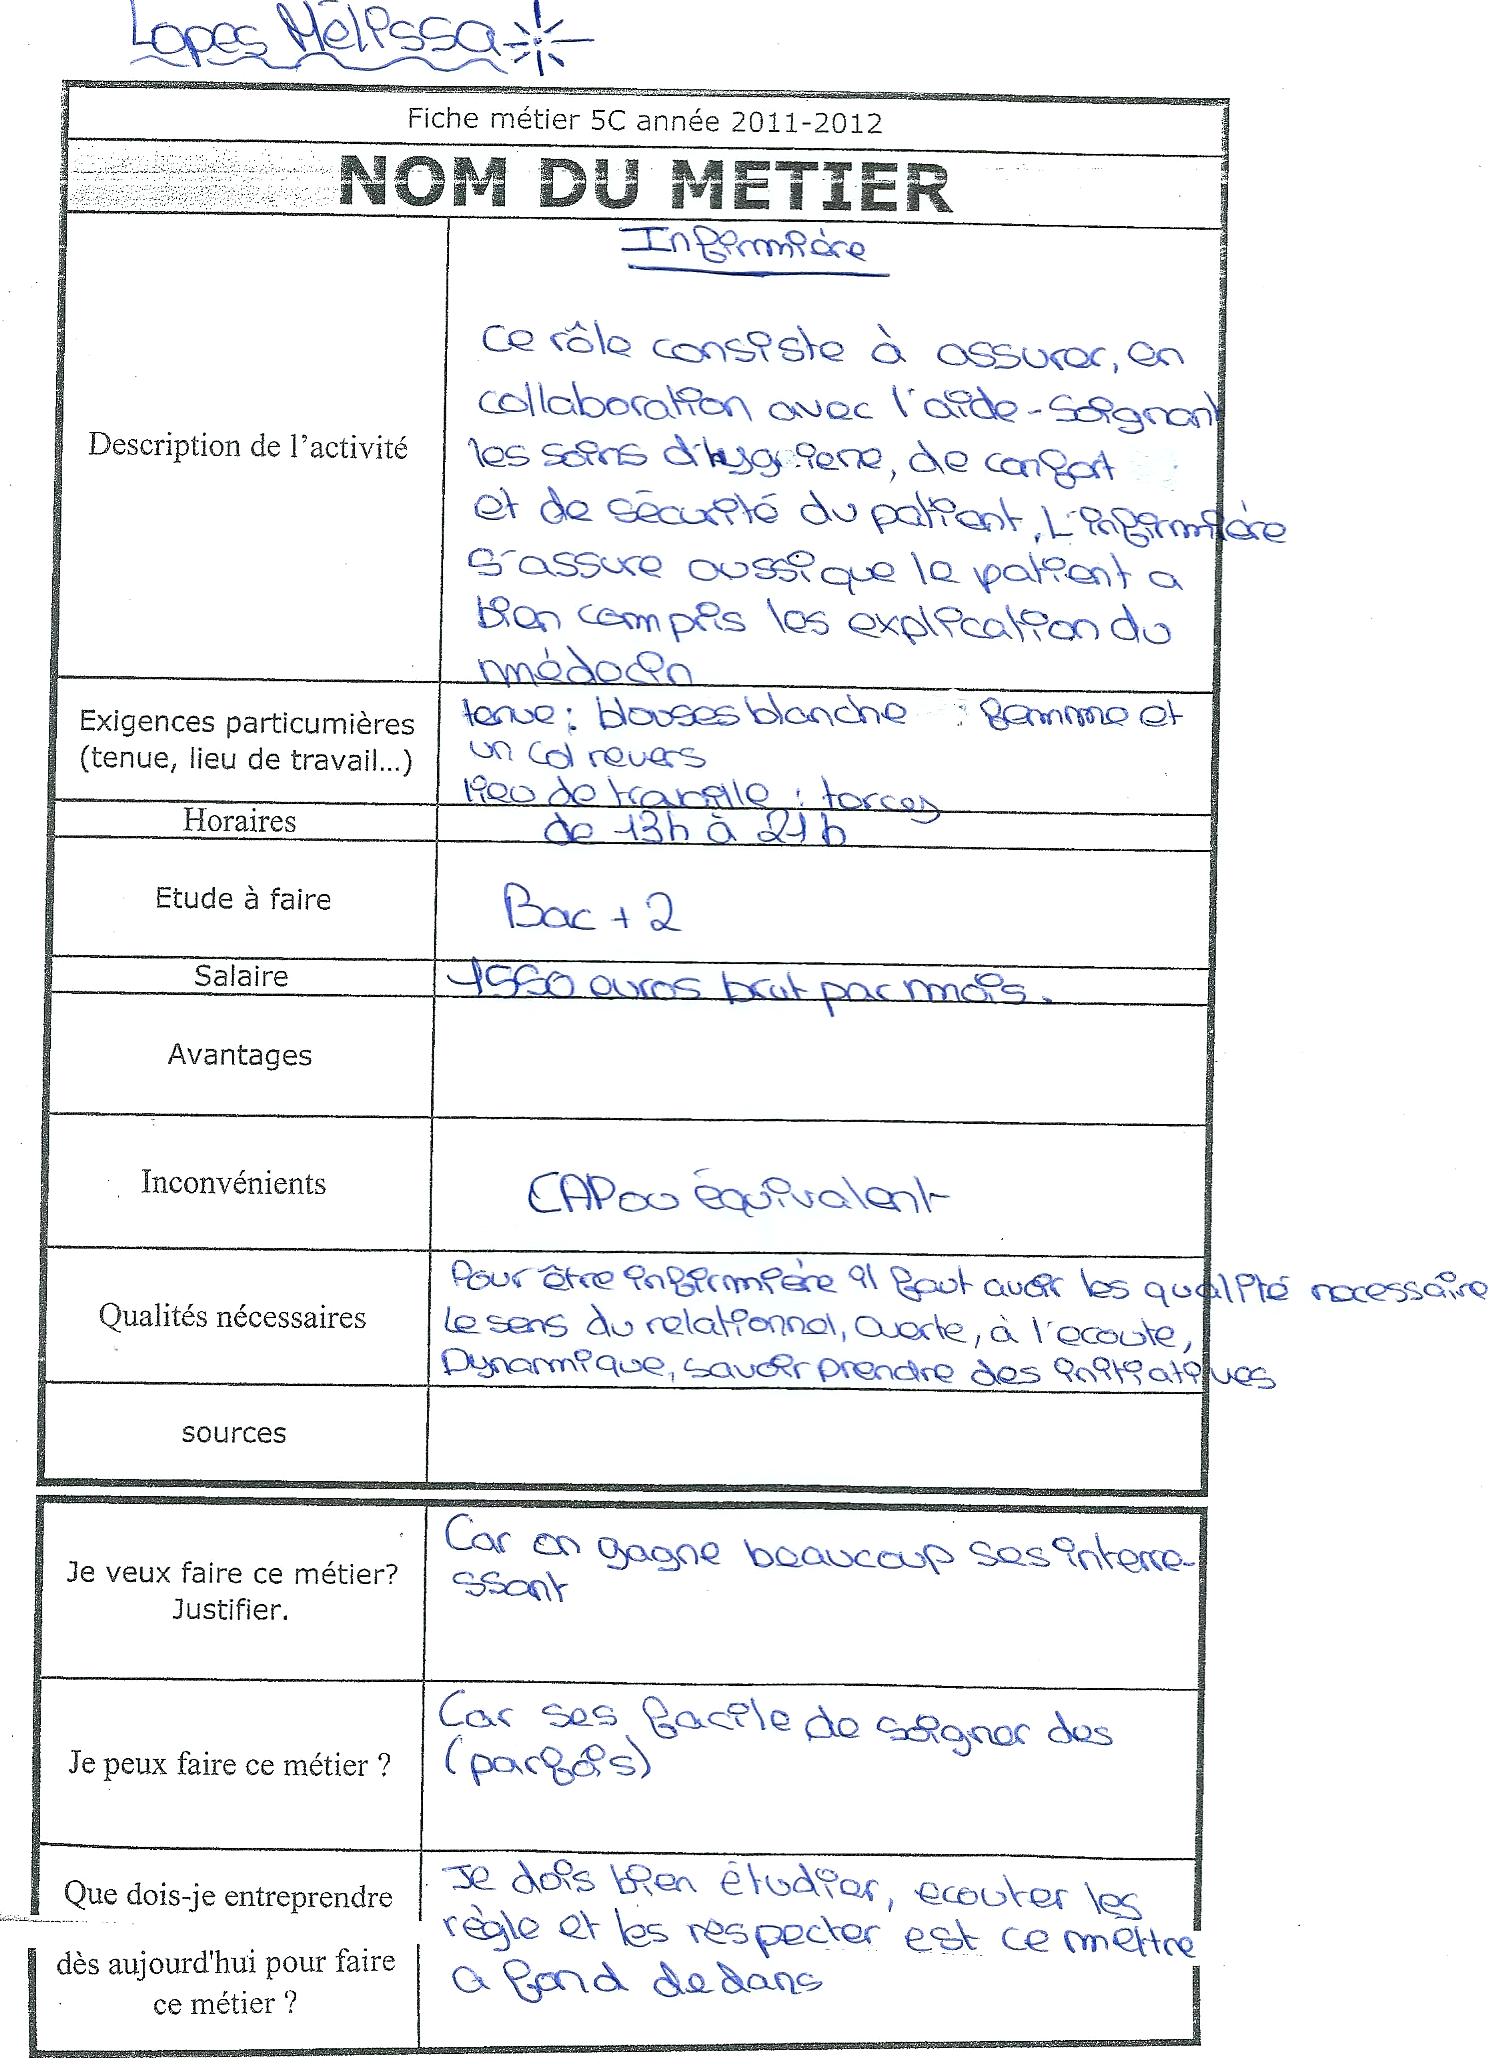 Lopes Mélissa
Fiche métier 5C année 2011-2012
NOM DU METIER
Infirmière
Description de l'activité
ce rôle consiste à assurer, en
collaboration avec l'aide-soignant
les soins d'hygiene, de confort
et de sécurité du patient, L'infirmière
s'assure aussi que le patient a
bien compris les explication du
médecin
Exigences particumières
(tenue, lieu de travail...)
tenue : blouses blanche : femme et
un col revers
lieu de travaille : torcey
Horaires
de 13h à 21h
Etude à faire
Bac + 2
Salaire
1550 euros brut par mois.
Avantages
Inconvénients
CAP ou équivalent
Qualités nécessaires
Pour être infirmière il faut avoir les qualité necessaire
Le sens du relationnel, alerte, à l'ecoute,
Dynamique, savoir prendre des initiatives
sources
Je veux faire ce métier?
Justifier.
Car on gagne beaucoup ses interre-
ssant
Je peux faire ce métier ?
Car ses facile de soigner des
(parfois)
Que dois-je entreprendre
dès aujourd'hui pour faire
ce métier ?
Je dois bien étudier, ecouter les
règle et les respecter est ce mettre
a fond dedans